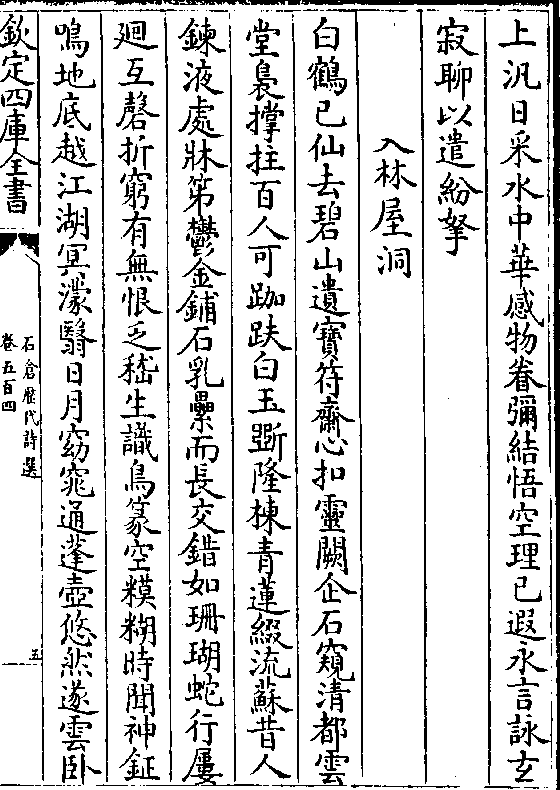 上汎日采水中華感物眷彌結悟空理已遐永言詠玄
寂聊以遣紛拏
入林屋洞
白鶴已仙去碧山遺寶符齋心扣靈闕企石窺清都雲
堂裊撑拄百人可跏趺白玉斲隆棟青蓮綴流蘇昔人
鍊液處牀笫鬱金鋪石乳纍而長交錯如珊瑚蛇行屢
廻互磬折窮有無恨乏嵇生識鳥篆空糢糊時聞神鉦
鳴地底越江湖冥濛翳日月窈窕通蓬壺悠然遂雲卧
欽定四庫全書
石倉歷代詩選
卷五百四
五